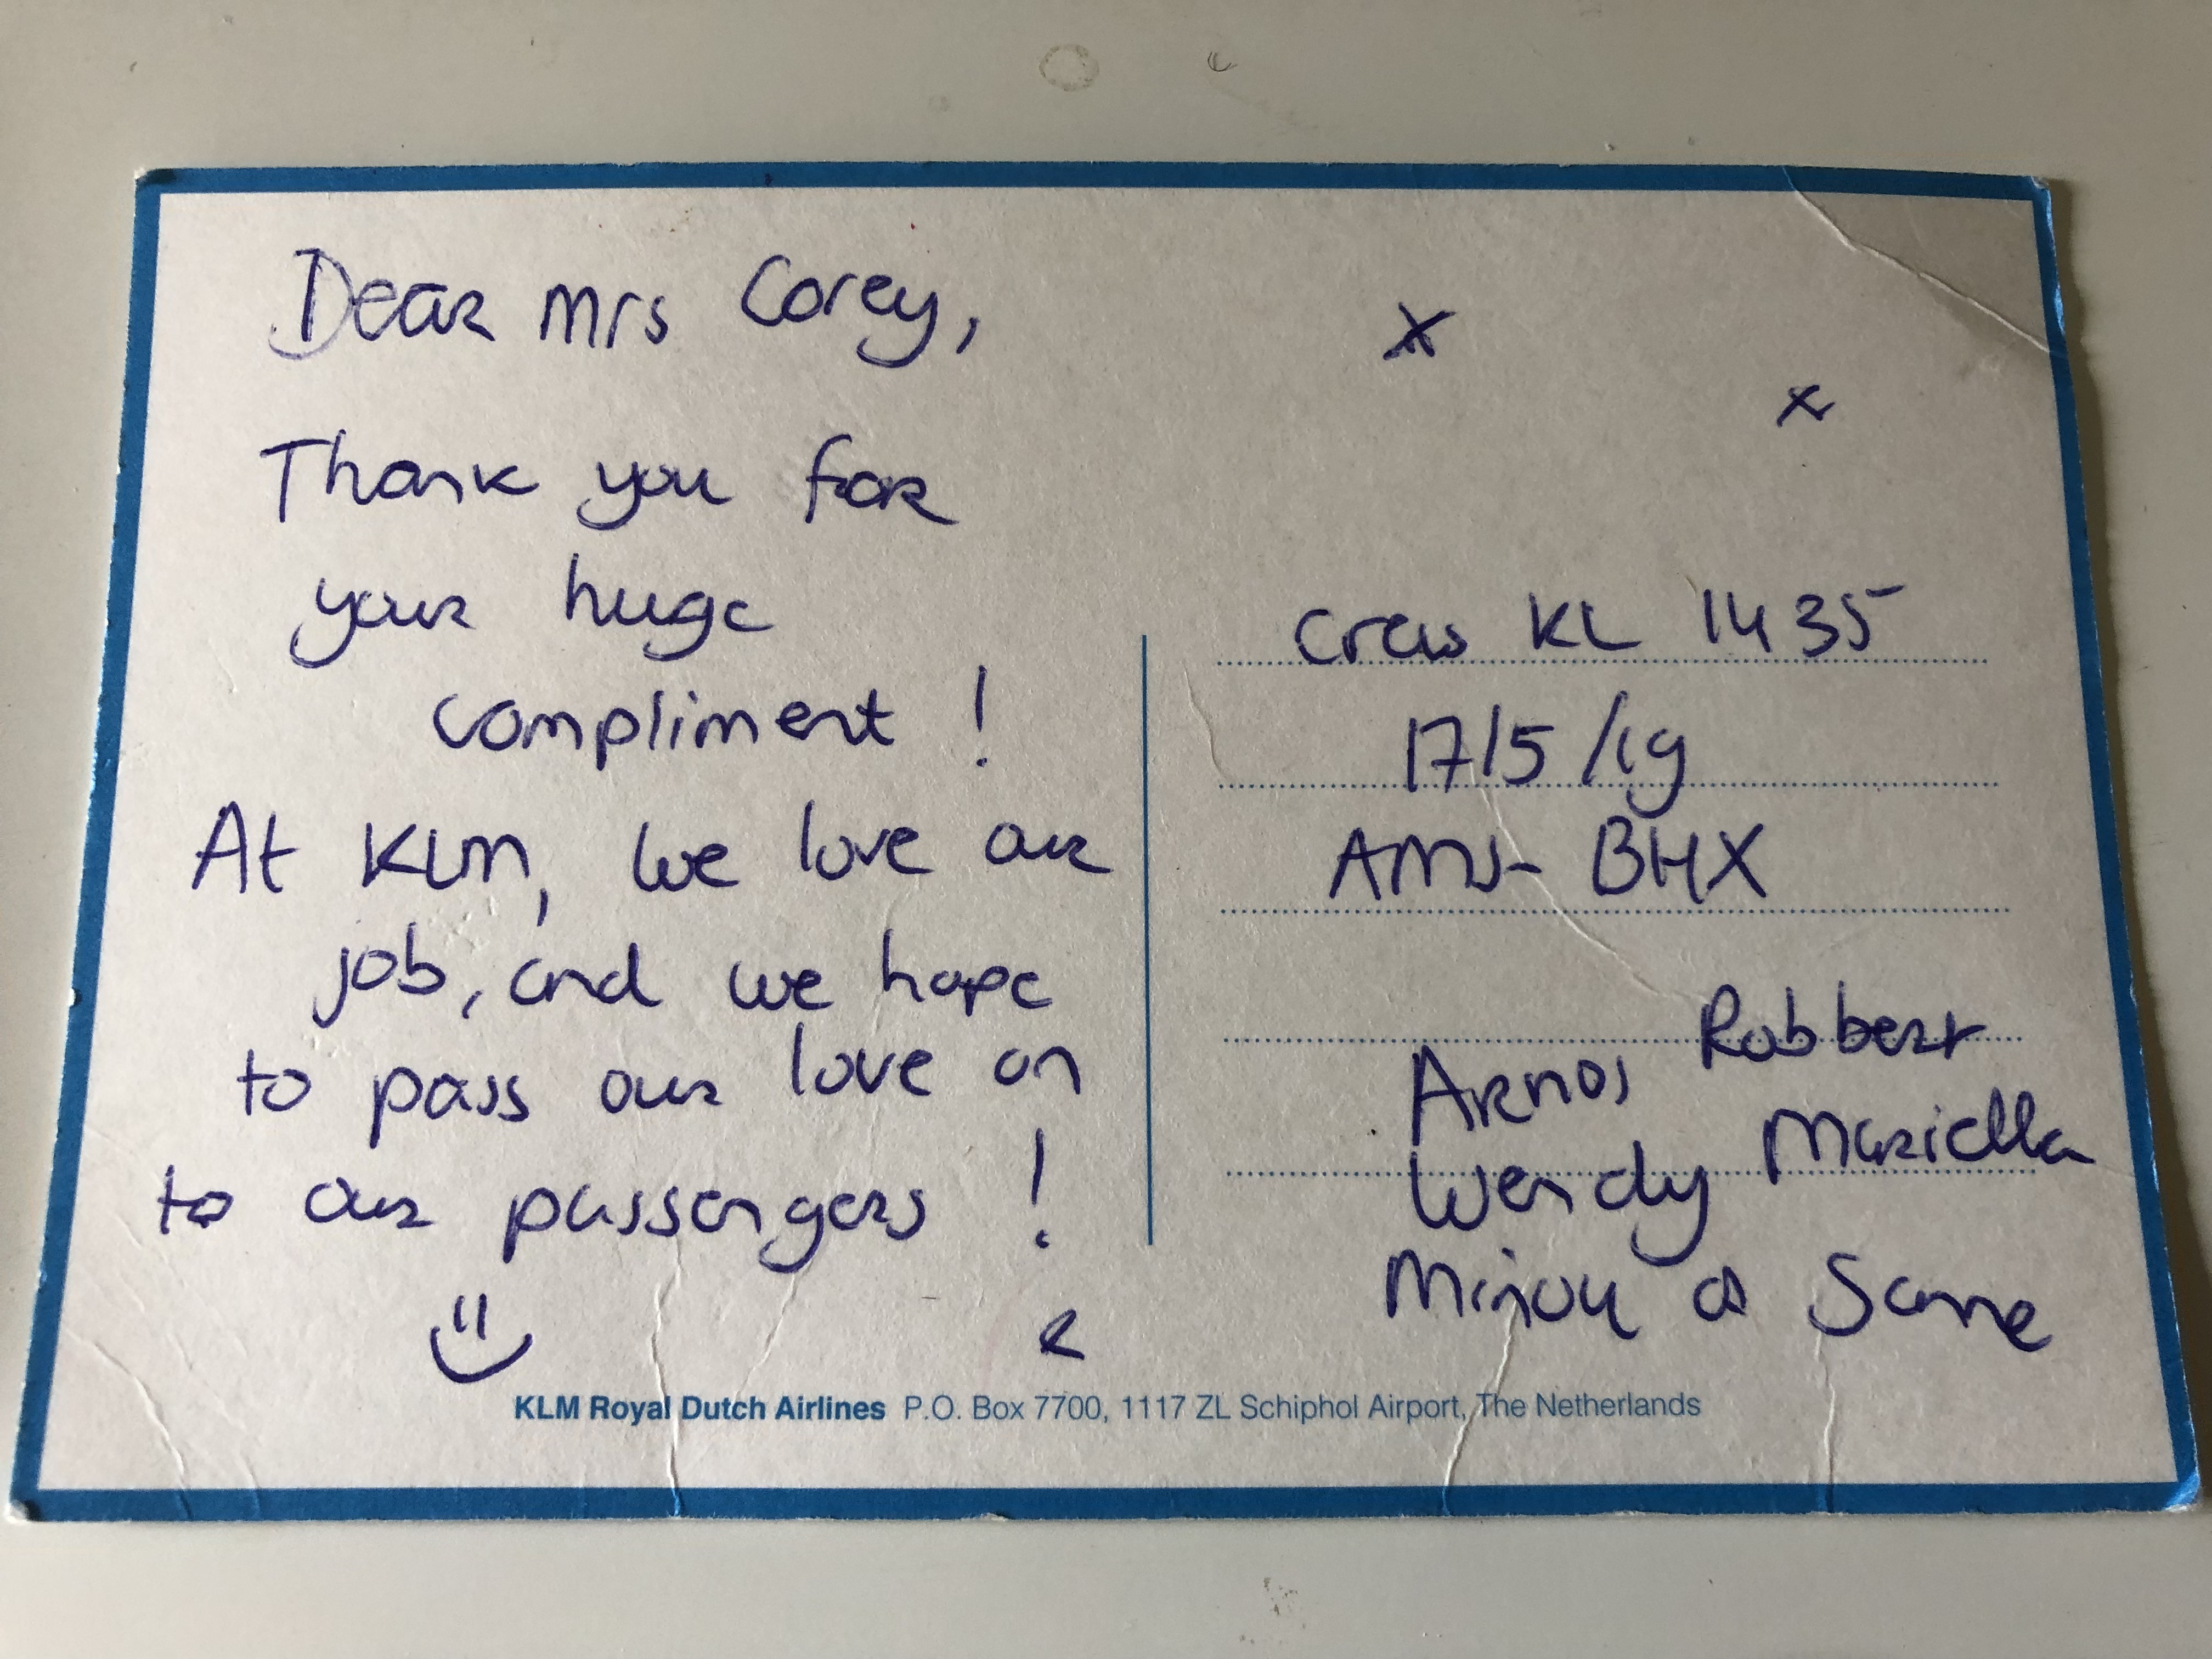 Dear Mrs Corey,
Thank you for
your huge
compliment!
At KLM, we love our
job, and we hope
to pass our love on
to our passengers!
x
x
x
Crew KL 1435
17/5/19
AMS-BHX
Robbert
Arno, Mariella
Wendy
Minou & Sanne
KLM Royal Dutch Airlines P.O. Box 7700, 1117 ZL Schiphol Airport, The Netherlands